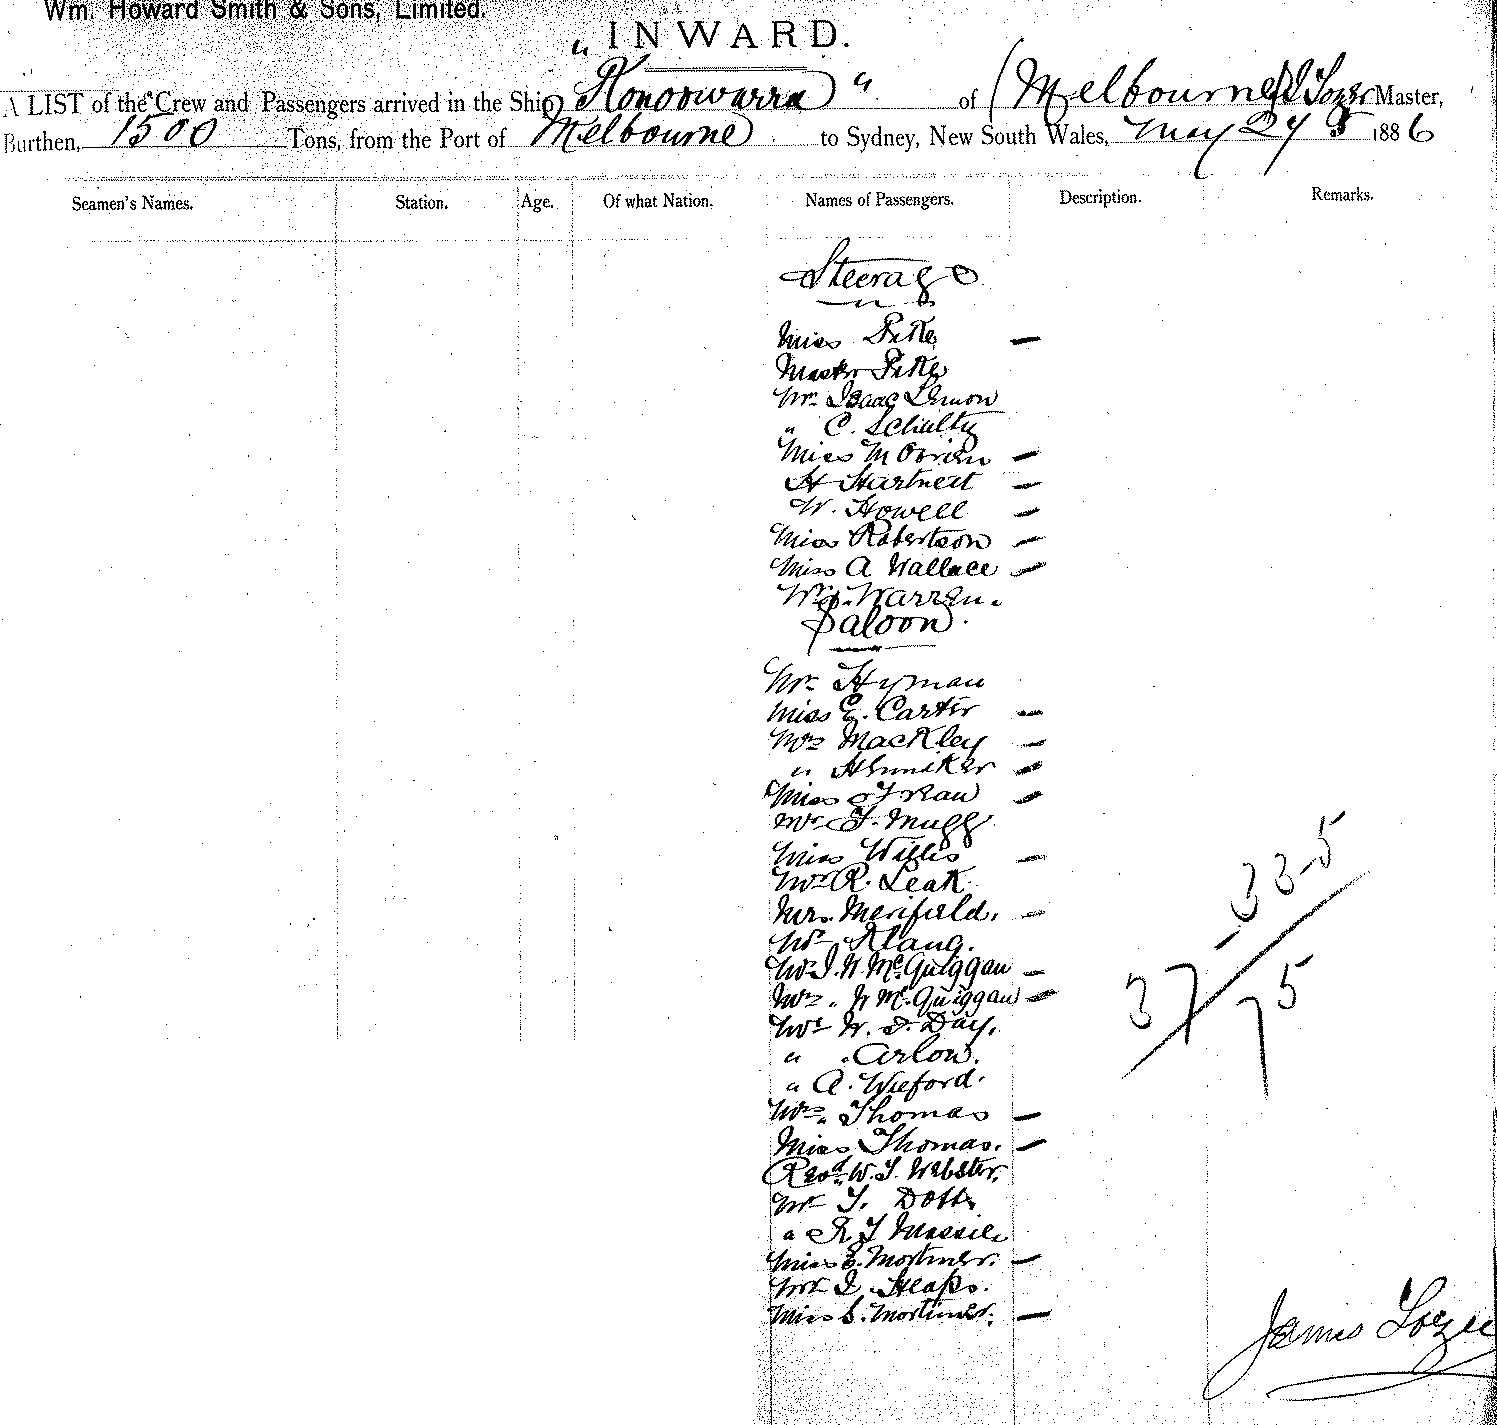 Wm. Howard Smith & Sons, Limited.
INWARD.
A LIST of the Crew and Passengers arrived in the Ship "Konoowarra" of (Melbourne) J Lozer Master,
Burthen, 1500 Tons, from the Port of Melbourne to Sydney, New South Wales, May 27 1886
Seamen's Names. Station. Age. Of what Nation. Names of Passengers. Description. Remarks.
Steerage
Miss Pike
Master Pike
Mr. Isaac Lemon
" C. Schultz
Miss M Obrien
H Hartnett
W. Howell
Miss Robertson
Miss A Wallace
Warren.
Saloon
Mr. Hyman
Miss E. Carter
Mrs Mackley
" Heniker
Miss
Mr F. Mugg
Miss Willis
Mr R. Leak
Mrs. Merifield.
Mr Klang.
Mr J. W McQuiggan
Mrs. " W Mc.Quiggan
Mr W. J. Day.
" Arlow.
" A. Wieford.
Mrs. Thomas
Miss Thomas.
Revd. W. J. Webster.
Mr T. Dotts
" R J Massie
Miss E. Mortimer.
Mr J. Heaps.
Miss S. Mortimer.
33-5
37
75
James Lozer